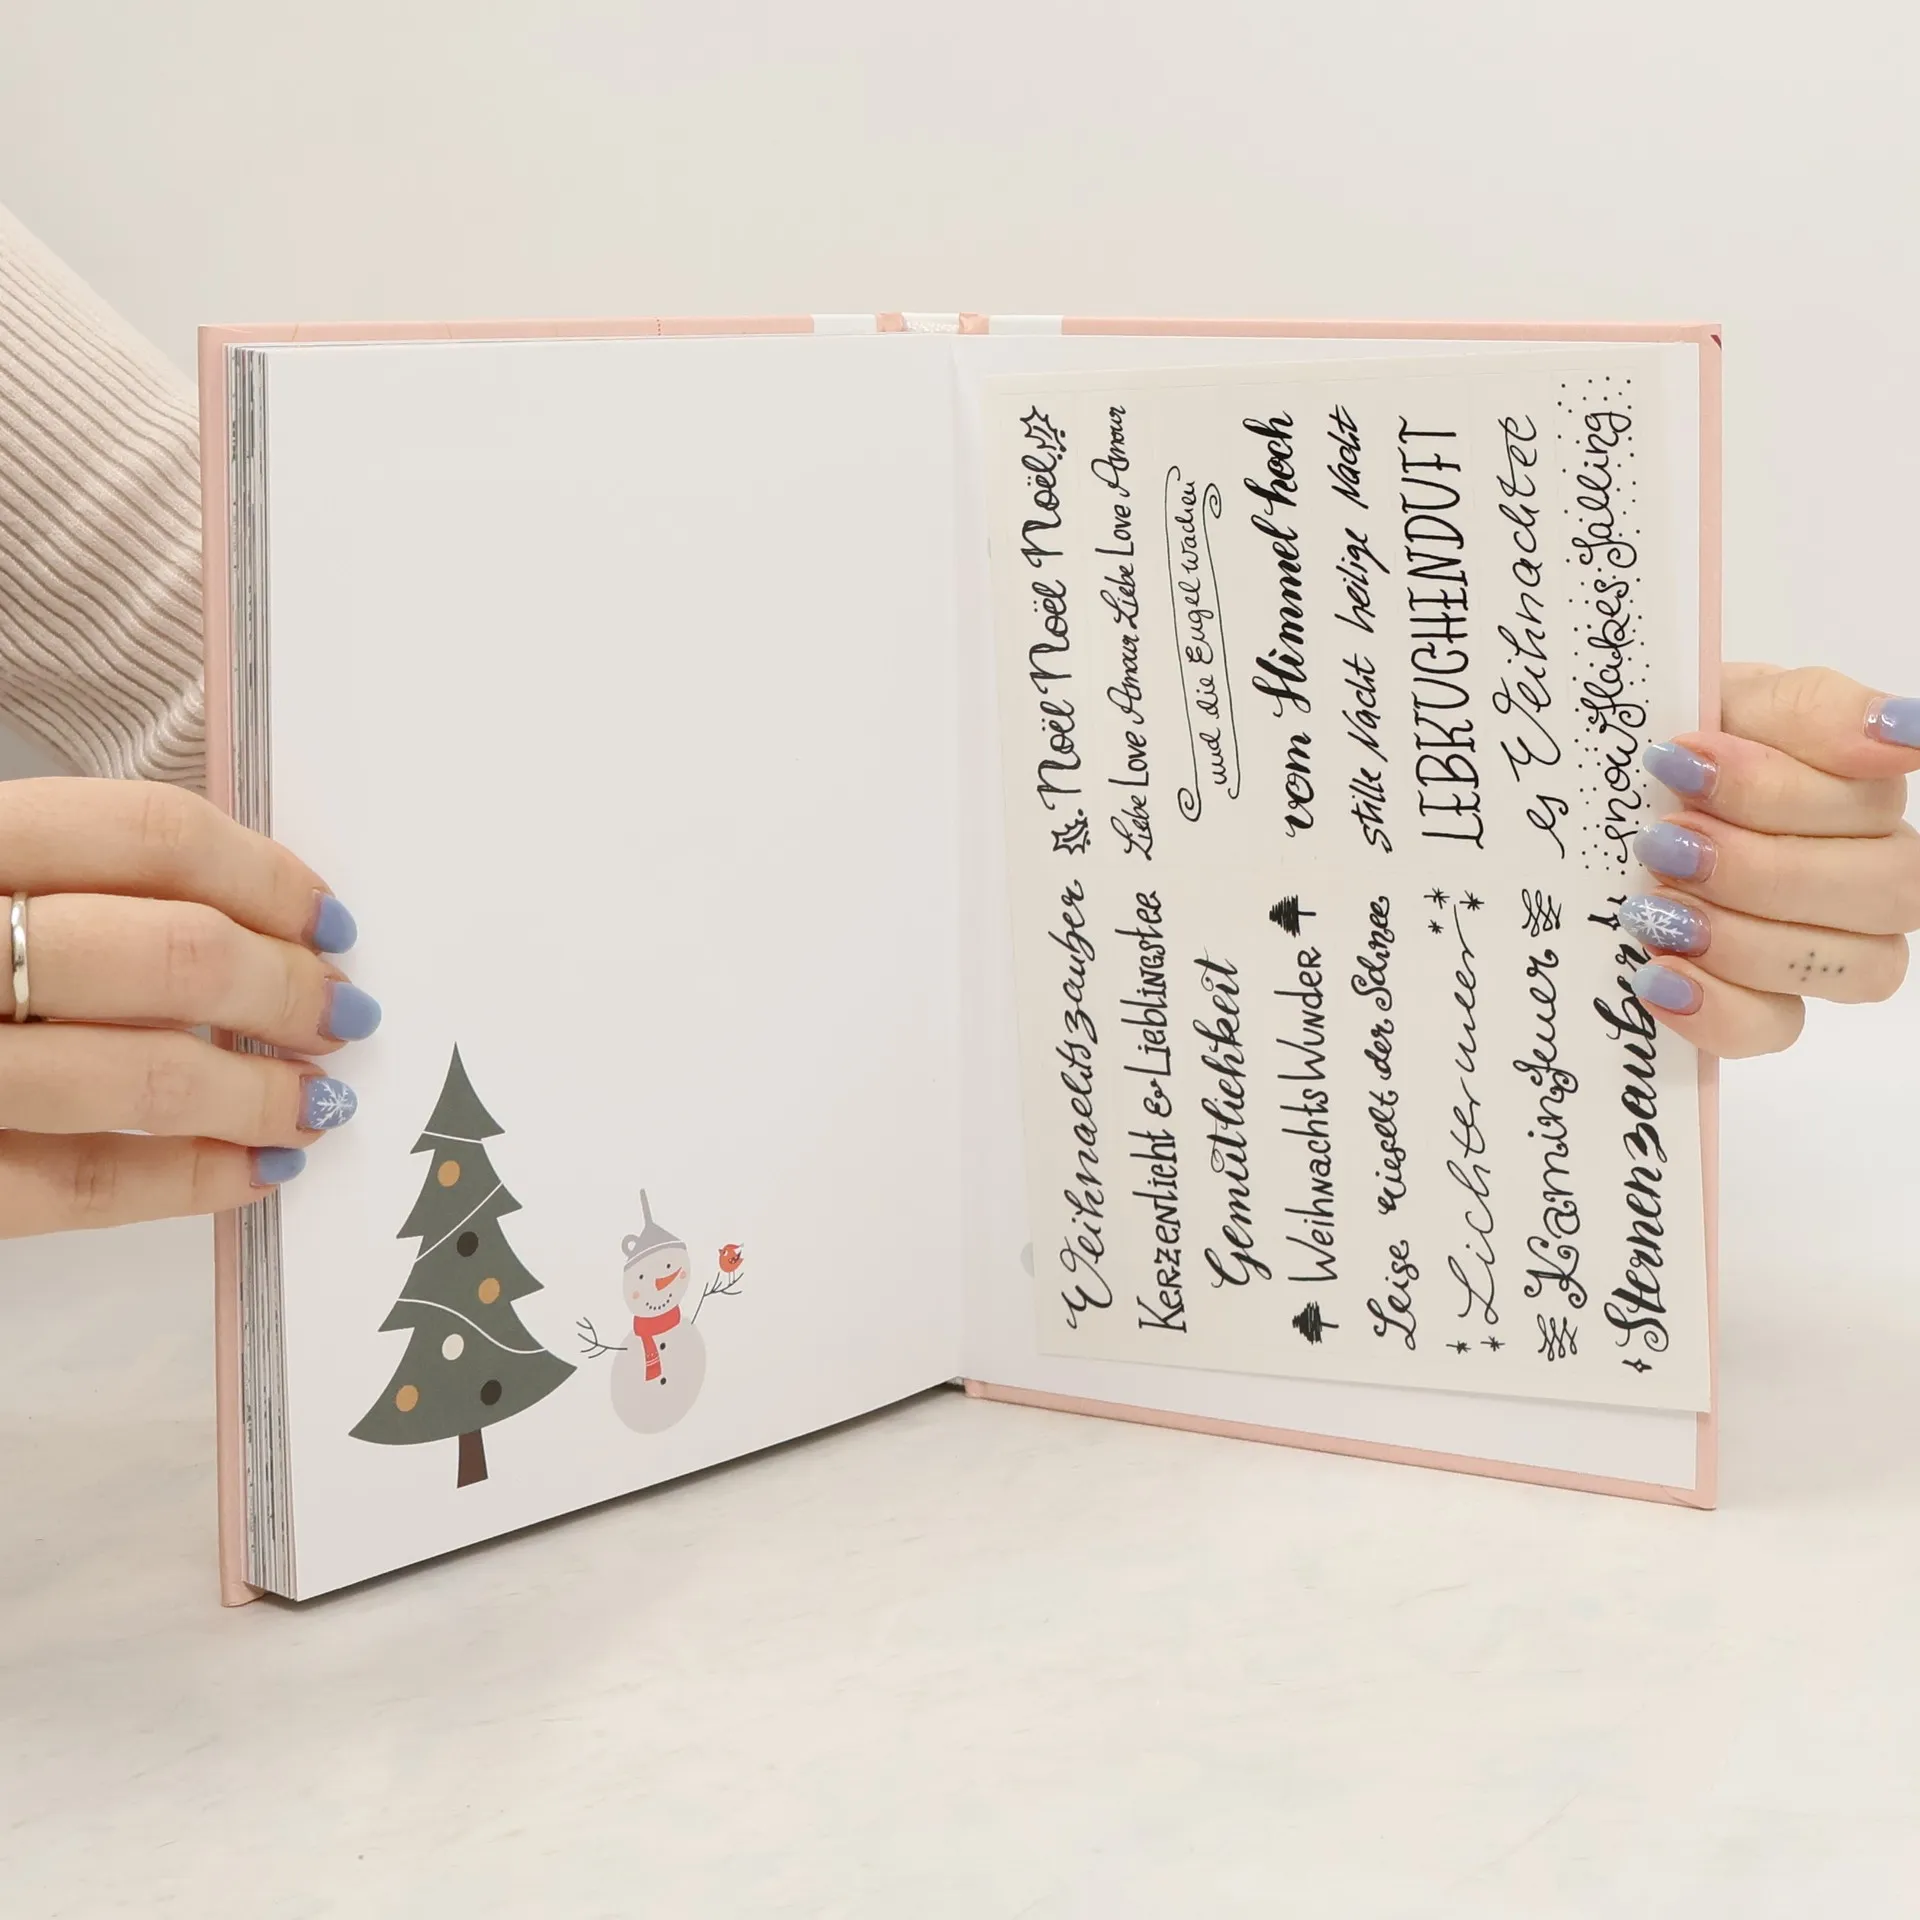 Noël Noël Noël Noël
Liebe Love Amour Liebe Love Amour Liebe Love Amour
und die Engel wachen
vom Himmel hoch
stille Nacht heilige Nacht
LEBKUCHENDUFT
es Weihnachtet
snowflakes falling
Weihnachtszauber
Kerzenlicht & Lieblingstee
Gemütlichkeit
WeihnachtsWunder
Leise rieselt der Schnee
Lichtermeer
Kaminfeuer
Sternenzauber